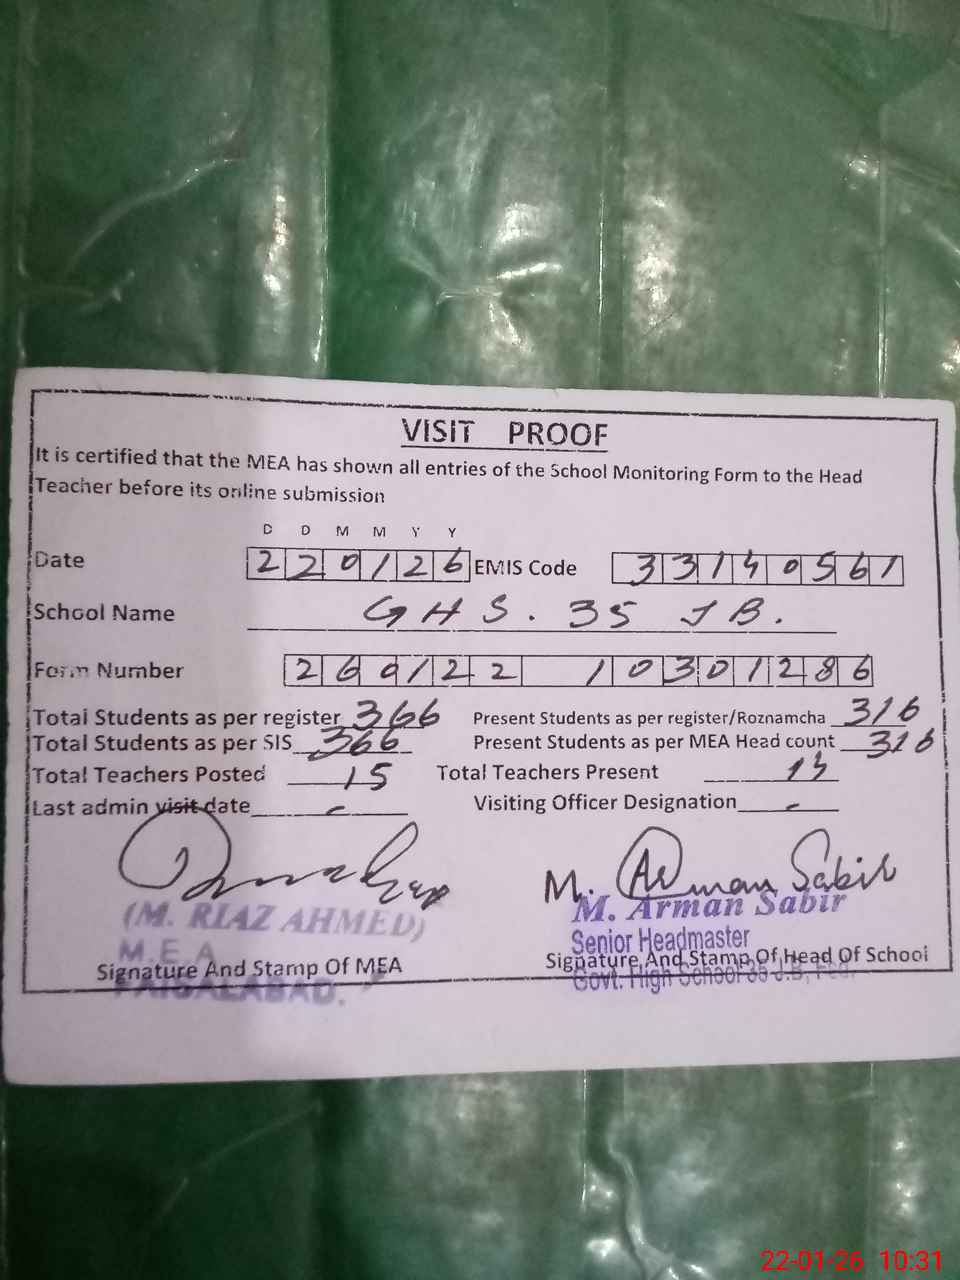 VISIT PROOF
It is certified that the MEA has shown all entries of the School Monitoring Form to the Head
Teacher before its online submission
D D M M Y Y
Date 2 2 0 1 2 6 EMIS Code 3 3 1 4 0 5 6 1
School Name GHS. 35 JB.
Form Number 2 6 0 1 2 2 1 0 3 0 1 2 8 6
Total Students as per register 366 Present Students as per register/Roznamcha 316
Total Students as per SIS 366 Present Students as per MEA Head count 316
Total Teachers Posted 15 Total Teachers Present 13
Last admin visit date - Visiting Officer Designation -
M. Arman Sabir
(M. RIAZ AHMED) M. Arman Sabir
M.E.A Senior Headmaster
Signature And Stamp Of MEA Signature And Stamp Of Head Of School
FAISALABAD. Govt. High School 35 J.B, Fsd.
22-01-26 10:31